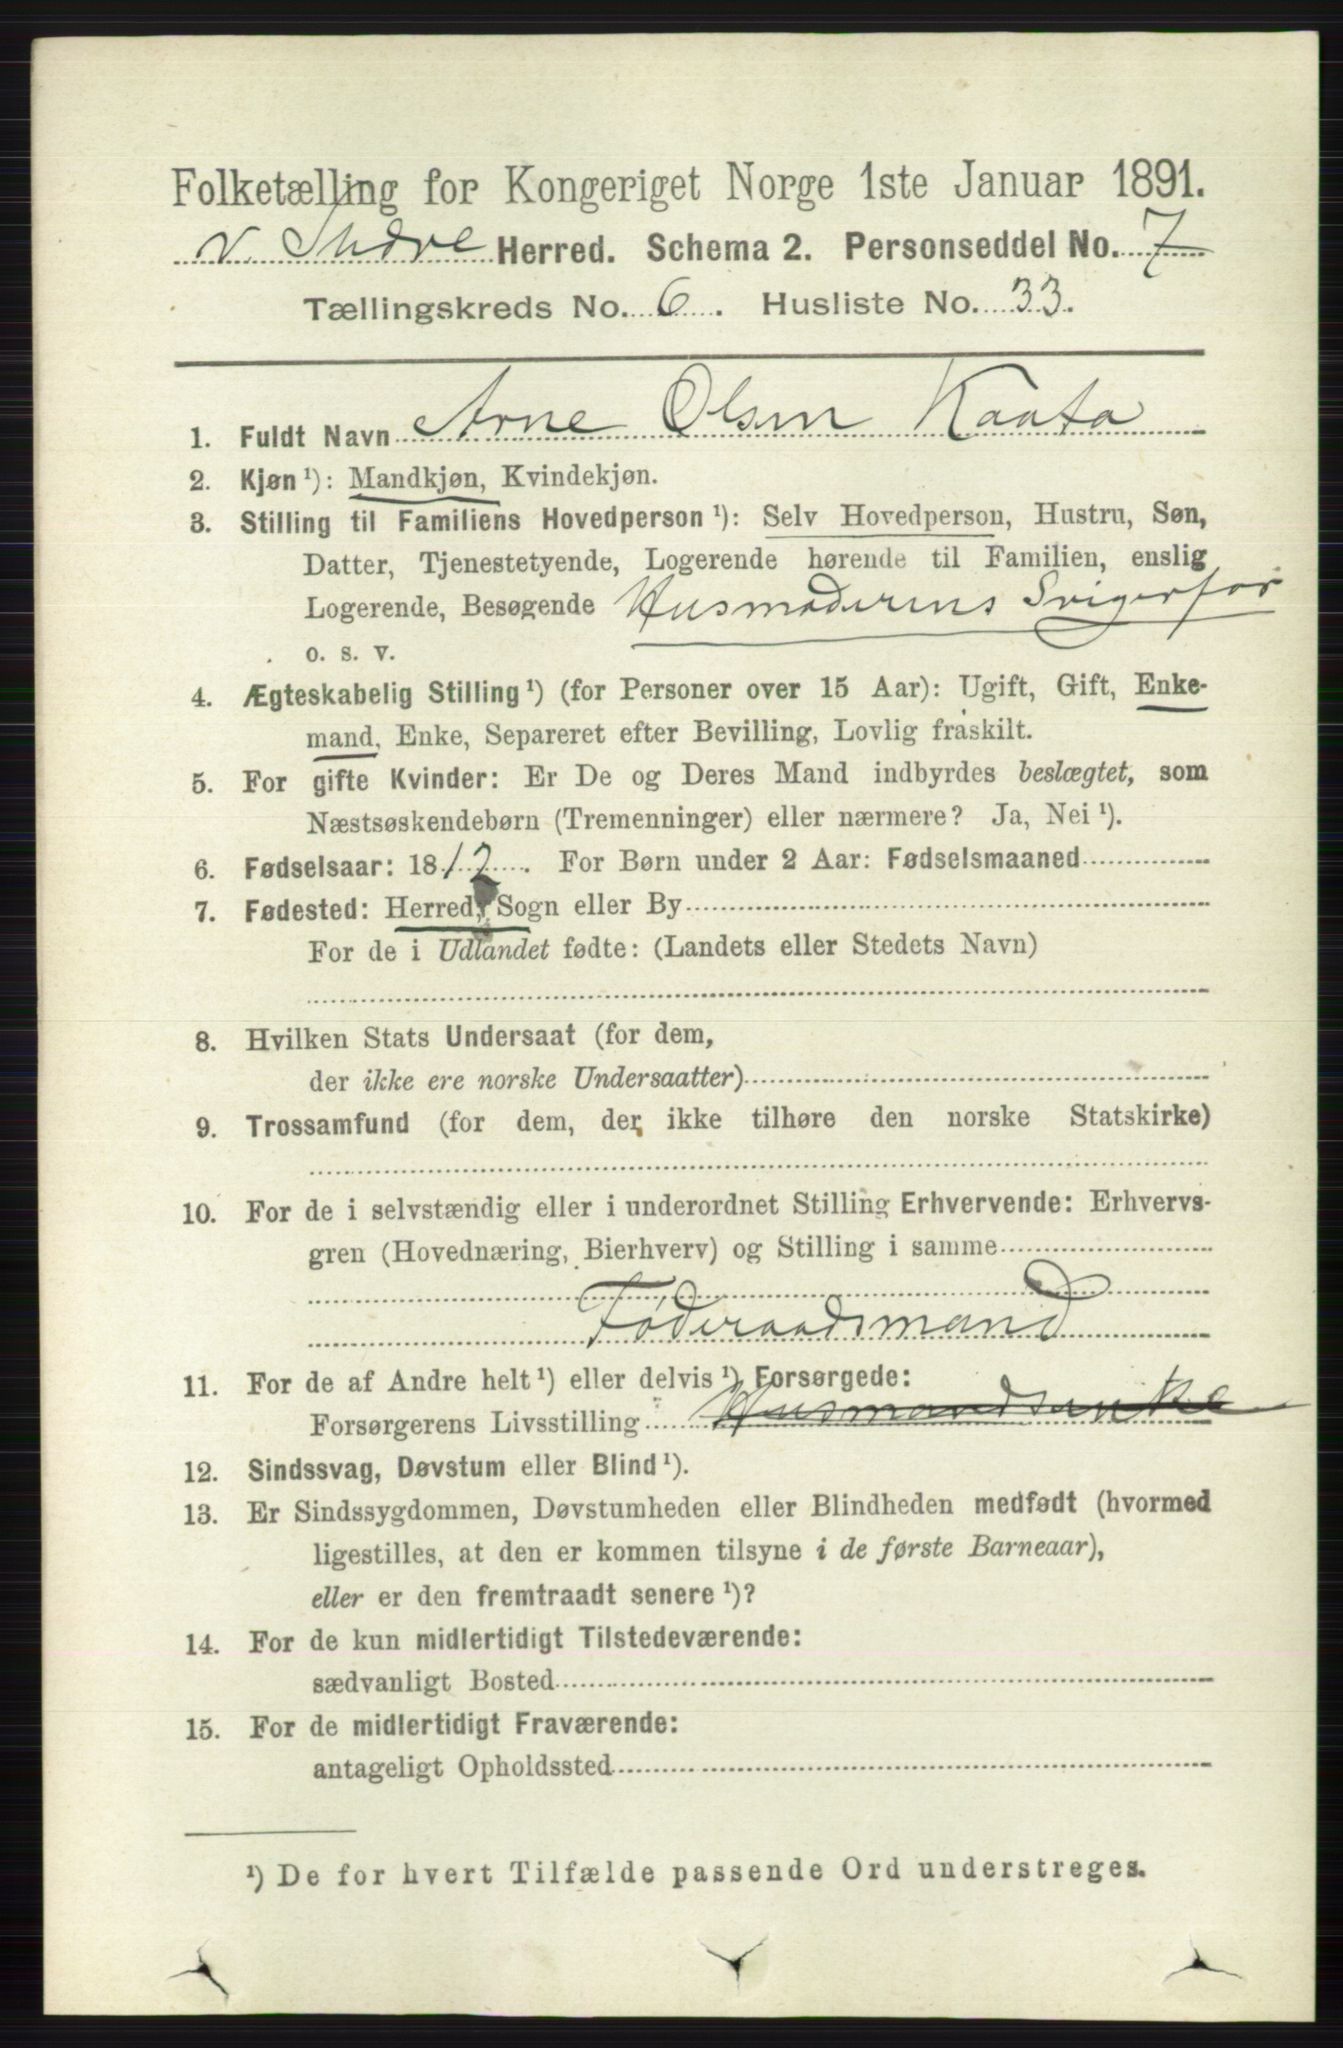 Folketælling for Kongeriget Norge 1ste Januar 1891.
V. Slidre Herred. Schema 2. Personseddel No. 7
Tællingskreds No. 6. Husliste No. 33.
1. Fuldt Navn Arne Olsen Kaata
2. Kjøn ¹): Mandkjøn, Kvindekjøn.
3. Stilling til Familiens Hovedperson ¹): Selv Hovedperson, Hustru, Søn,
Datter, Tjenestetyende, Logerende hørende til Familien, enslig
Logerende, Besøgende Husmoderens Svigerfar
o. s. v.
4. Ægteskabelig Stilling ¹) (for Personer over 15 Aar): Ugift, Gift, Enke-
mand, Enke, Separeret efter Bevilling, Lovlig fraskilt.
5. For gifte Kvinder: Er De og Deres Mand indbyrdes beslægtet, som
Næstsøskendebørn (Tremenninger) eller nærmere? Ja, Nei ¹).
6. Fødselsaar: 1812. For Børn under 2 Aar: Fødselsmaaned
7. Fødested: Herred, Sogn eller By
For de i Udlandet fødte: (Landets eller Stedets Navn)
8. Hvilken Stats Undersaat (for dem,
der ikke ere norske Undersaatter)
9. Trossamfund (for dem, der ikke tilhøre den norske Statskirke)
10. For de i selvstændig eller i underordnet Stilling Erhvervende: Erhvervs-
gren (Hovednæring, Bierhverv) og Stilling i samme
Føderaadsmand
11. For de af Andre helt ¹) eller delvis ¹) Forsørgede:
Forsørgerens Livsstilling Husmandsenke
12. Sindssvag, Døvstum eller Blind ¹).
13. Er Sindssygdommen, Døvstumheden eller Blindheden medfødt (hvormed
ligestilles, at den er kommen tilsyne i de første Barneaar),
eller er den fremtraadt senere ¹)?
14. For de kun midlertidigt Tilstedeværende:
sædvanligt Bosted
15. For de midlertidigt Fraværende:
antageligt Opholdssted
¹) De for hvert Tilfælde passende Ord understreges.